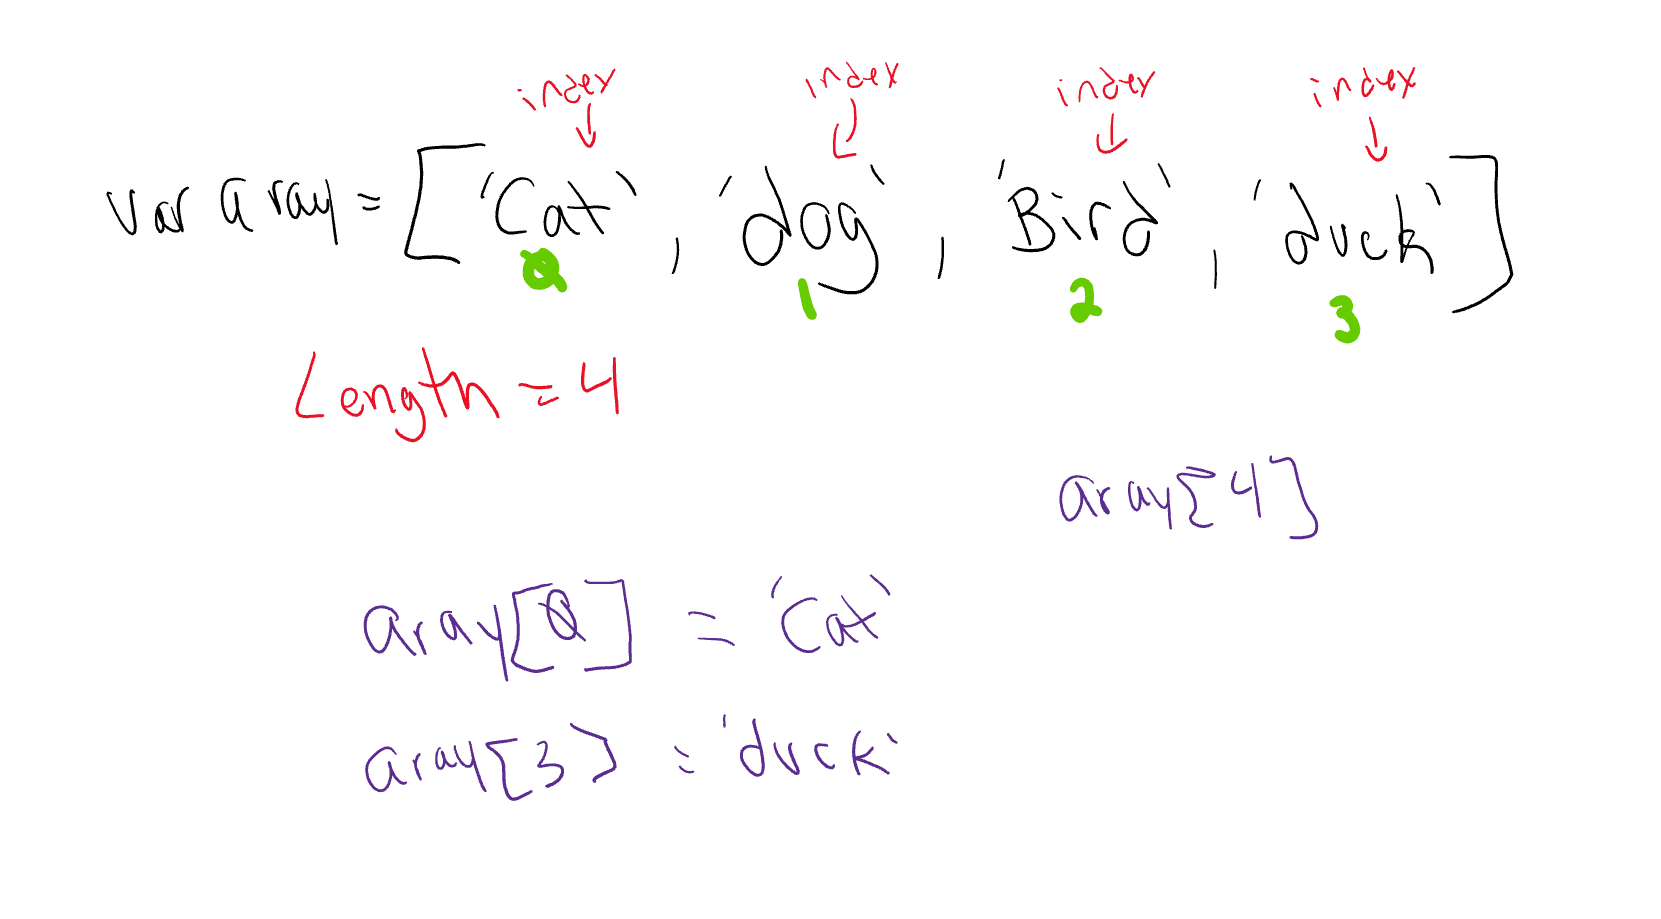 index index index index
var aray = ['Cat', 'dog', 'Bird', 'duck']
0 1 2 3
Length = 4
aray[4]
aray[0] = 'Cat'
aray[3] = 'duck'